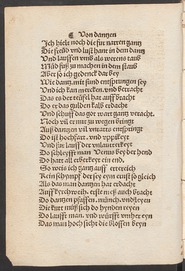 Von dantzen
Ich hielt noch die für narren gantz
Die freüd vnd lust hant in dem dantz
Vnd louffen vmb als werens taub
Müd füß zu machen in dem staub
Aber so ich gedenck dar bey
Wie dantz mit sünd entsprungen sey
Vnd ich kan mercken vnd betracht
Das es der tüfel hat auffbracht
Do er das gulden kalb erdacht
Vnd schuff das got wart gantz veracht
Noch vil er mit zu wegen bringt
Auß dantzen vil vnrats entspringt
Do ist hochfart vnd üppikeit
Vnd für louff der vnlauterkeit
Do schleyfft man Venus bey der hend
Do hat all erberkeyt ein end
So weis ich gantz auff erterich
Kein schympf der sey eim ernst so glich
Als das man dantzen hat erdacht
Auff kirchweih, erste meß auch bracht
Do dantzen pfaffen, münch, vnd leyen
Die kut müß sich do hynden reyen
Do laufft man vnd würfft vmher eyn
Das man hoch sieht die blossen beyn